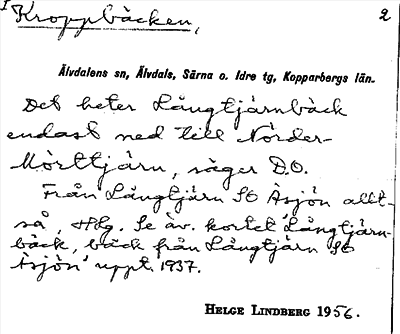 Kroppbäcken, 2
Älvdalens sn, Älvdals, Särna o. Idre tg, Kopparbergs län.
Det heter Långtjärnbäck
endast ned till Nörder-
Mörttjärn, säger D.O.
Från Långtjärn SO Åsjön allt-
så, Hlg. Se äv. kortet 'Långtjärn-
bäck, bäck från Långtjärn SO
Åsjön' uppt. 1937.
HELGE LINDBERG 1956.